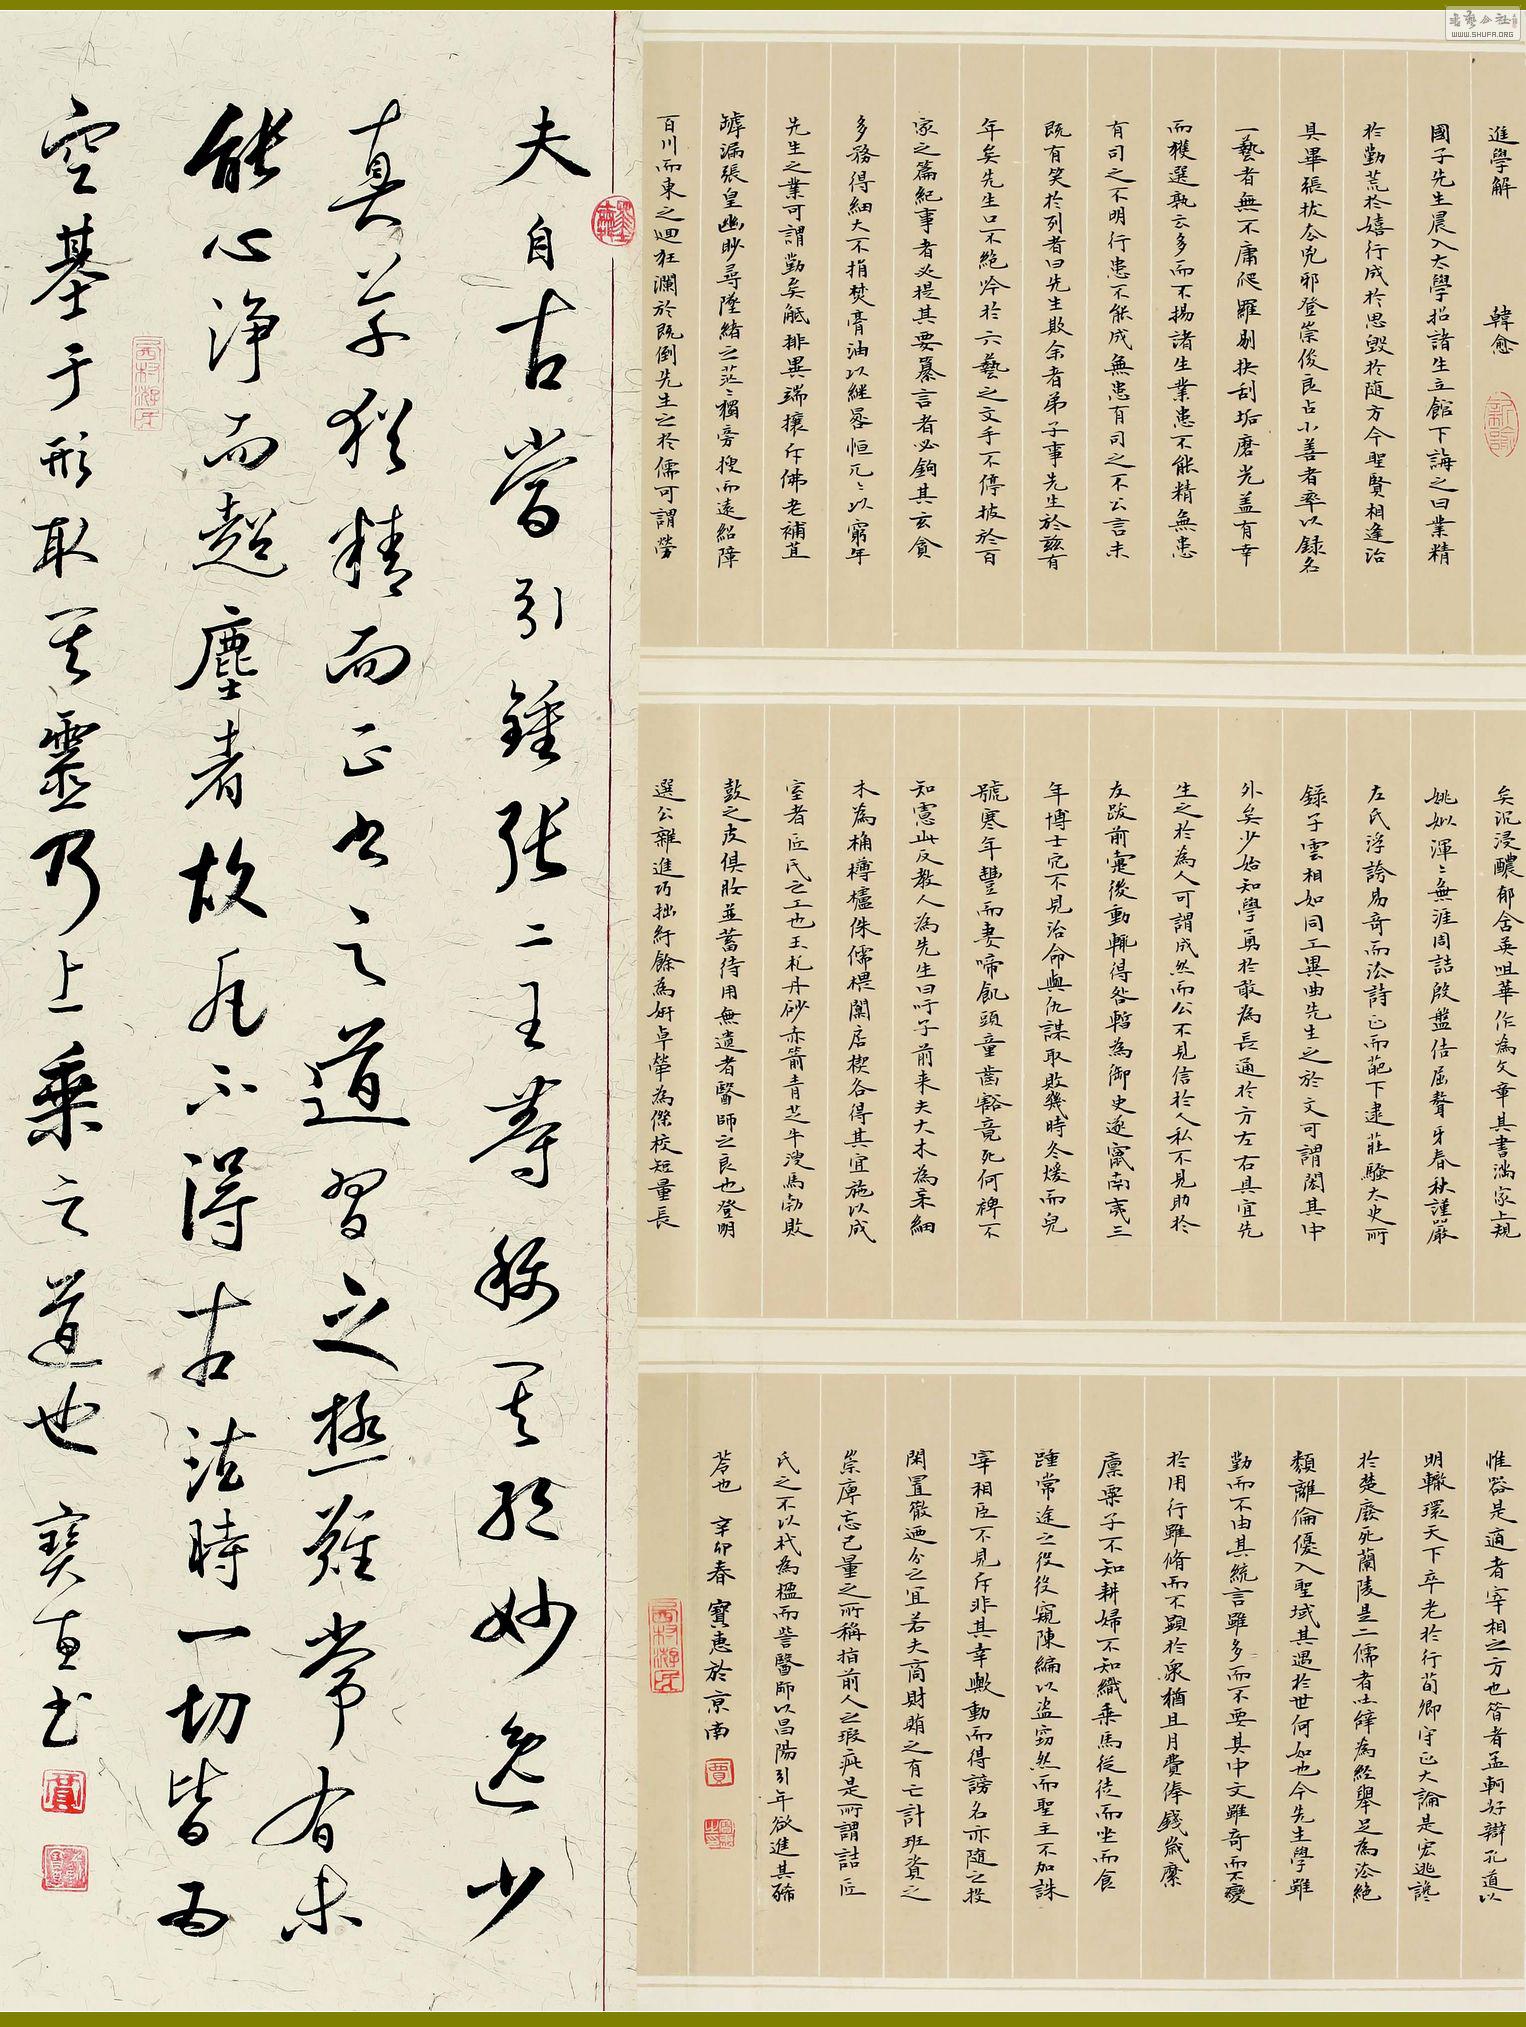 進學解 韓愈
國子先生晨入太學招諸生立館下誨之曰業精
於勤荒於嬉行成於思毀於隨方今聖賢相逢治
具畢張拔去兇邪登崇俊良占小善者率以錄名
一藝者無不庸爬羅剔抉刮垢磨光蓋有幸
而獲選孰云多而不揚諸生業患不能精無患
有司之不明行患不能成無患有司之不公言未
既有笑於列者曰先生欺余者弟子事先生於茲有
年矣先生口不絕吟於六藝之文手不停披於百
家之篇紀事者必提其要纂言者必鉤其玄貪
多務得細大不捐焚膏油以繼晷恒兀〻以窮年
先生之業可謂勤矣觝排異端攘斥佛老補苴
罅漏張皇幽眇尋墜緒之茫〻獨旁搜而遠紹障
百川而東之迴狂瀾於既倒先生之於儒可謂勞
矣沉浸醲郁含英咀華作為文章其書滿家上規
姚姒渾〻無涯周誥殷盤佶屈聱牙春秋謹嚴
左氏浮誇易奇而法詩正而葩下逮莊騷太史所
錄子雲相如同工異曲先生之於文可謂閎其中
外矣少始知學勇於敢為長通於方左右具宜先
生之於為人可謂成然而公不見信於人私不見助於
友跋前疐後動輒得咎暫為御史遂竄南夷三
年博士冗不見治命與仇謀取敗幾時冬煖而兒
號寒年豐而妻啼飢頭童齒豁竟死何裨不
知慮此反教人為先生曰吁子前來夫大木為杗細
木為桷欂櫨侏儒椳闑居楔各得其宜施以成
室者匠氏之工也玉札丹砂赤箭青芝牛溲馬勃敗
鼓之皮俱收並蓄待用無遺者醫師之良也登明
選公雜進巧拙紆餘為妍卓犖為傑校短量長
惟器是適者宰相之方也昔者孟軻好辯孔道以
明轍環天下卒老於行荀卿守正大論是宏逃讒
於楚廢死蘭陵是二儒者吐辭為經舉足為法絕
類離倫優入聖域其遇於世何如也今先生學雖
勤而不由其統言雖多而不要其中文雖奇而不
於用行雖脩而不顯於眾猶且月費俸錢歲縻
廩粟子不知耕婦不知織乘馬從徒而坐而食
踵常途之役役窺陳編以盜竊然而聖主不加誅
宰相臣不見斥非其幸歟動而得謗名亦隨之投
閑置散迺分之宜若夫商財賄之有亡計班資之
崇庳忘己量之所稱指前人之瑕疵是所謂詰匠
氏之不以杙為楹而訾醫師以昌陽引年欲進其豨
苓也 辛卯春 寶惠於京南
夫自古嘗引鍾張二王等稱其形妙逸少
真草猶精而正書之道習之極難常有未
能心淨而超塵者故凡不得古法時一切皆為
空基于形取其靈乃上乘之道也 寶惠书
WWW.SHUFA.ORG